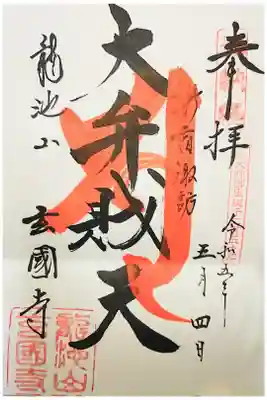 奉拝
令和五年
五月四日
新宿諏訪
大弁財天
龍池山
玄國寺
龍池山
玄國寺